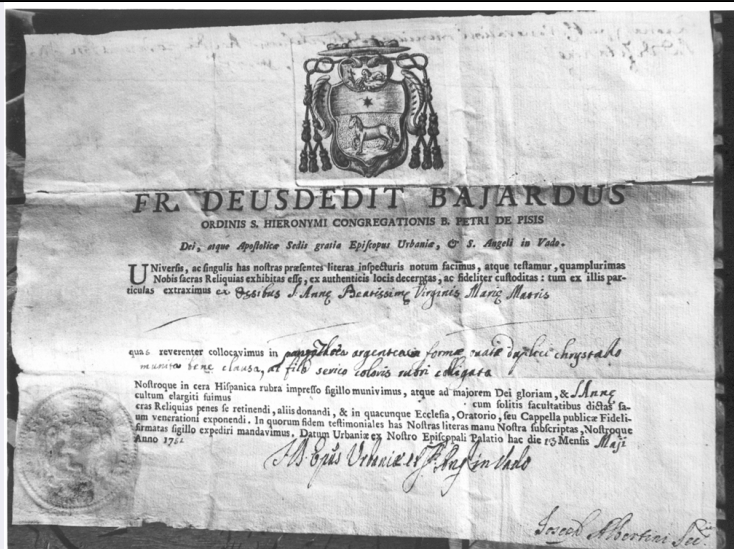 FR. DEUSDEDIT BAJARDUS
ORDINIS S. HIERONYMI CONGREGATIONIS B. PETRI DE PISIS
Dei, atque Apostolicæ Sedis gratia Episcopus Urbaniæ, & S. Angeli in Vado.
UNiversis, ac singulis has nostras præsentes literas inspecturis notum facimus, atque testamur, quamplurimas
Nobis sacras Reliquias exhibitas esse, ex authenticis locis decerptas, ac fideliter custoditas: tum ex illis par-
ticulas extraximus ex Ossibus S. Annę Beatissimę Virginis Marię Matris
quas reverenter collocavimus in argentea formæ ovatæ duplici chrystallo
munita bene clausa, ac filo serico coloris rubri colligata
Nostroque in cera Hispanica rubra impresso sigillo munivimus, atque ad majorem Dei gloriam, & S. Annę
cultum elargiti fuimus cum solitis facultatibus dictas sa-
cras Reliquias penes se retinendi, aliis donandi, & in quacunque Ecclesia, Oratorio, seu Cappella publicæ Fideli-
um venerationi exponendi. In quorum fidem testimoniales has Nostras literas manu Nostra subscriptas, Nostroque
firmatas sigillo expediri mandavimus. Datum Urbaniæ ex Nostro Episcopali Palatio hac die 13 Mensis Maji
Anno
Epũs Urbaniæ et S. Ang. in Vado
Joseph Albertini Sec.